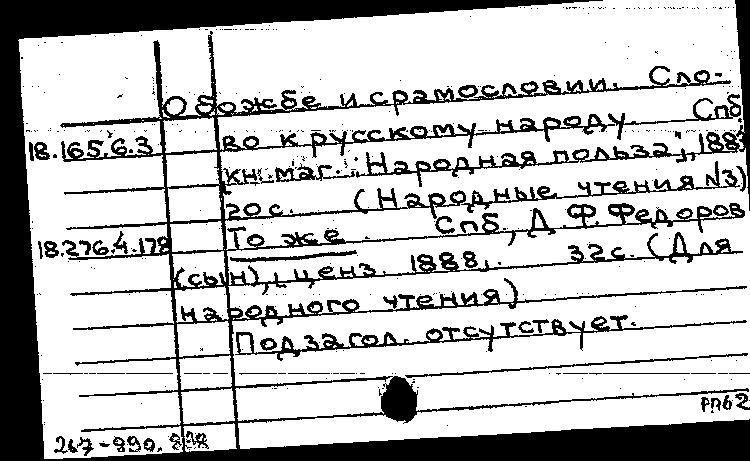 О божбе и срамословии. Сло-
18.165.6.3 во к русскому народу. Спб
кн. маг. "Народная польза",
20 с. (Народные чтения №3)
18.276.4.178 То же. Спб, Д. Ф. Федоров
(сын), ценз. 1888, 32 с. (Для
народного чтения)
Подзагол. отсутствует.